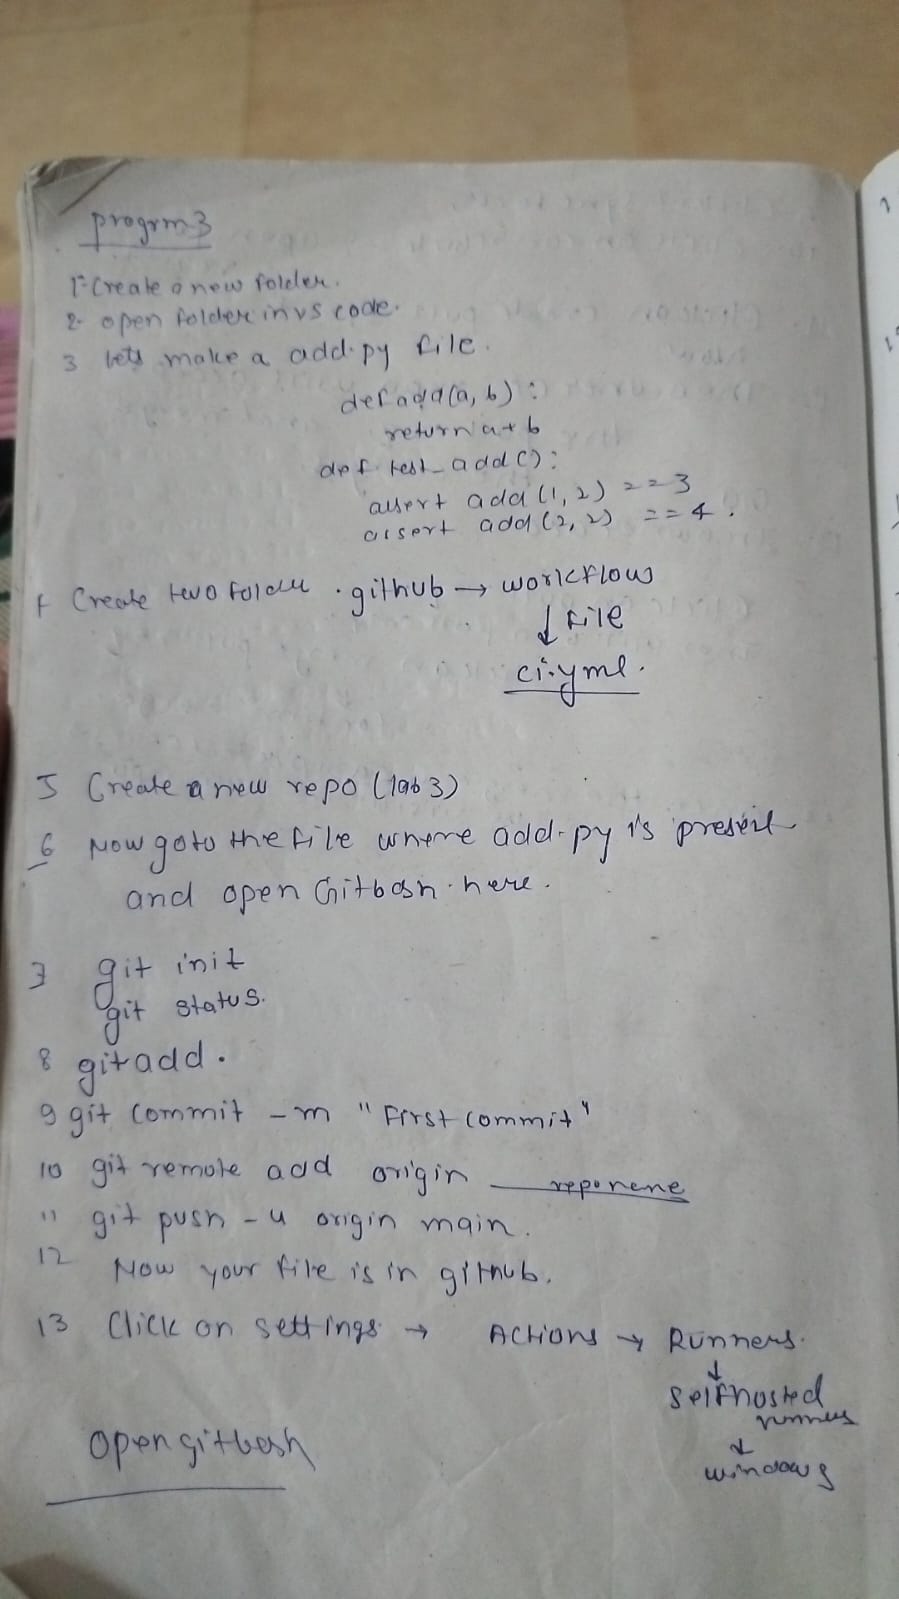 progrm3
1- Create a new folder.
2- open folder in vs code.
3 lets make a add.py file.
def add(a, b) :
return a+b
def test_add():
assert add (1, 2) == 3
assert add (2, 2) == 4.
Create two folder .github → workflow
↓ file
ci.yml.
5 Create a new repo (lab 3)
6 Now goto the file where add.py is present
and open Gitbash here.
7 git init
git status.
8 git add .
9 git commit -m "First commit"
10 git remote add origin
11 git push -u origin main.
12 Now your file is in github.
13 Click on settings → Actions → Runners.
↓
Selfhosted
runners
↓
windows
open gitbash